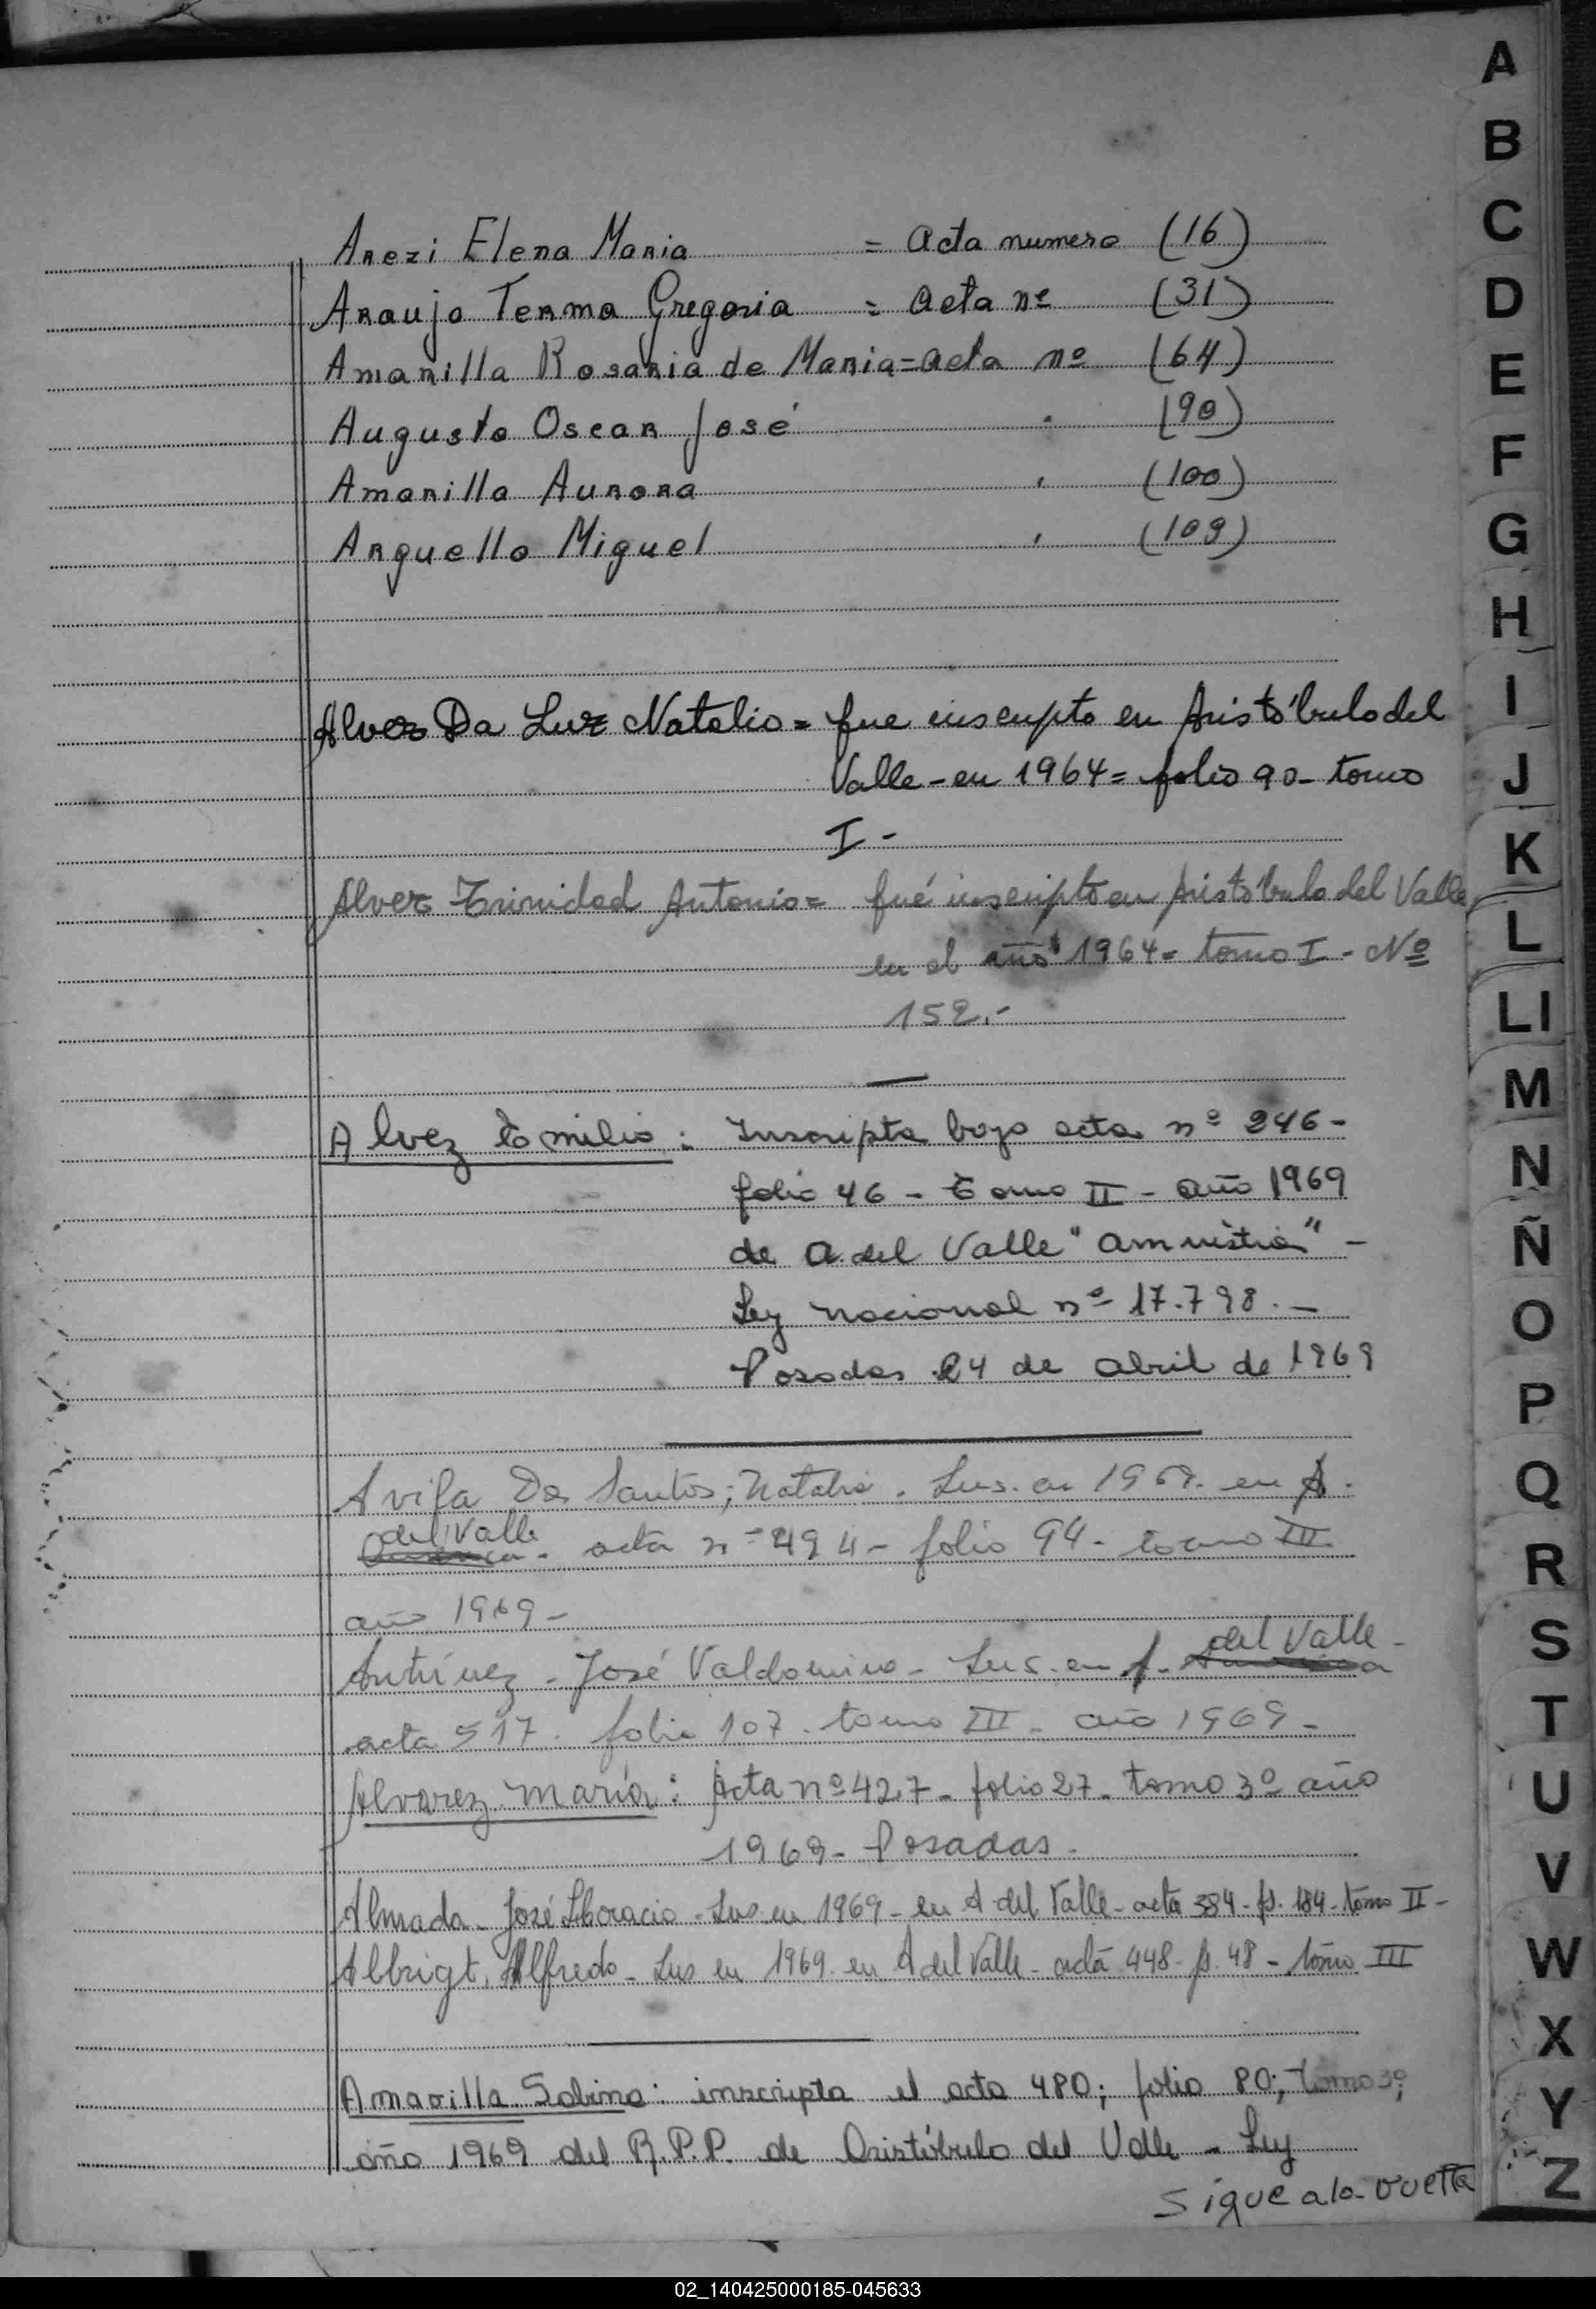 Arezi Elena Maria = Acta numero (16)
Araujo Terma Gregoria = Acta nº (31)
Amarilla Rosaria de Maria = acta nº (64)
Augusto Oscar José " (90)
Amarilla Aurora " (100)
Arguello Miguel " (109)
Alvez Da Luz Natalio = fue inscripto en Aristóbulo del
Valle - en 1964 = folio 90 - tomo
I -
Alvez Trinidad Antonio = fué inscripto en Aristóbulo del Valle
en el año 1964 = tomo I - Nº
152.-
Alvez Emilio : Inscripta bajo acta nº 246 -
folio 46 - Tomo II - año 1969
de A. del Valle "amnistia" -
Ley nacional nº 17.798. -
Posadas 24 de abril de 1969
Avila Dos Santos, Natalio. Ins. en 1969. en A.
del Valle
acta nº 494 - folio 94 - tomo III
año 1969 -
del Valle -
Antúnez - José Valdomiro - Ins. en A.
acta 517. folio 107. tomo III - año 1969 -
Alvarez María : Acta nº 427 - folio 27 - tomo 3º año
1969 - Posadas.
Almada - José - Ins en 1969 - en A del Valle - acta 384 - fs. 184 - tomo II -
Albrigt, Alfredo - Ins en 1969 en A del Valle - acta 448 - fs. 48 - tomo III
Amarilla Sabino : inscripta el acta 480; folio 80; tomo 3º;
año 1969 del R.P.P. de Aristóbulo del Valle - Ley
Sigue a la vuelta
A
B
C
D
E
F
G
H
I
J
K
L
Ll
M
N
Ñ
O
P
Q
R
S
T
U
V
W
X
Y
Z
02_140425000185-045633